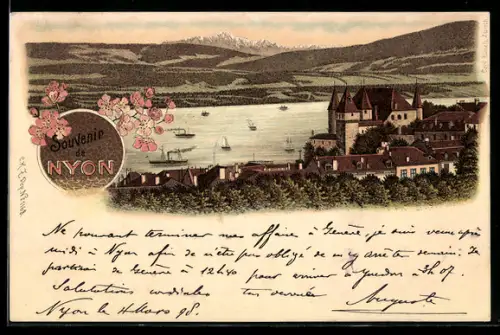 Souvenir
de
NYON
Ne pouvant terminer mes affaires à Genève je suis venu après
midi à Nyon afin de n'être pas obligé de m'y arrêter demain. Je
partirai de Genève à 12h40 pour arriver à Yverdon à 3h.07.
Salutations cordiales ton dévoué
Auguste
Nyon le 4 Mars 98.